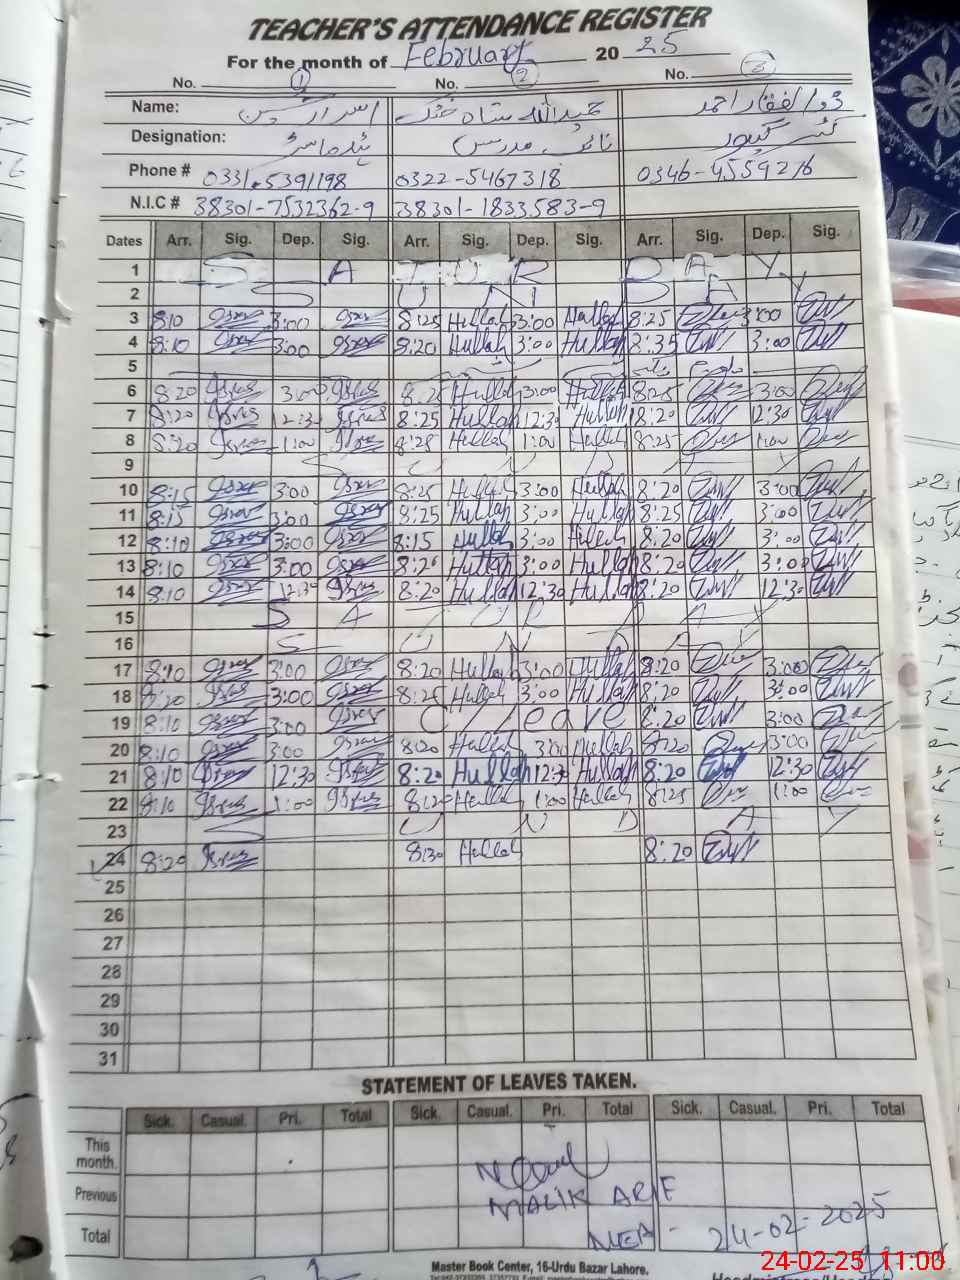 TEACHER'S ATTENDANCE REGISTER
For the month of February 20 25
No. 1 No. 2 No. 3
Name: اسرار حسین حمید اللہ شاہ خٹک ذوالفقار احمد
Designation: ہیڈ ماسٹر نائب مدرس
Phone # 0331-5391198 0322-5467318 0346-9559276
N.I.C # 38301-7532362-9 38301-1833583-9
Dates Arr. Sig. Dep. Sig. Arr. Sig. Dep. Sig. Arr. Sig. Dep. Sig.
1 S A T U R D A Y
2 S U N D A Y
3 8:10 Israr 3:00 Israr 8:25 Hullah 3:00 Hullah 8:25 3:00
4 8:10 Israr 3:00 Israr 8:20 Hullah 3:00 Hullah 8:35 3:00
5
6 8:20 Israr 3:00 Israr 8:25 Hullah 3:00 Hullah 8:25 3:00
7 8:20 Israr 12:30 Israr 8:25 Hullah 12:30 Hullah 8:20 12:30
8 8:20 Israr 1:00 Israr 8:25 Hullah 1:00 Hullah 8:25 1:00
9 S U N D A Y
10 8:15 Israr 3:00 Israr 8:25 Hullah 3:00 Hullah 8:20 3:00
11 8:15 Israr 3:00 Israr 8:25 Hullah 3:00 Hullah 8:25 3:00
12 8:10 Israr 3:00 Israr 8:15 Hullah 3:00 Hullah 8:20 3:00
13 8:10 Israr 3:00 Israr 8:20 Hullah 3:00 Hullah 8:20 3:00
14 8:10 Israr 12:30 Israr 8:20 Hullah 12:30 Hullah 8:20 12:30
15 S A T U R D A Y
16 S U N D A Y
17 8:10 Israr 3:00 Israr 8:20 Hullah 3:00 Hullah 8:20 3:00
18 8:20 Israr 3:00 Israr 8:25 Hullah 3:00 Hullah 8:20 3:00
19 8:10 Israr 3:00 Israr C/Leave 8:20 3:00
20 8:10 Israr 3:00 Israr 8:20 Hullah 3:00 Hullah 8:20 3:00
21 8:10 Israr 12:30 Israr 8:20 Hullah 12:30 Hullah 8:20 12:30
22 8:10 Israr 1:00 Israr 8:20 Hullah 1:00 Hullah 8:25 1:00
23 S U N D A Y
24 8:20 Israr 8:30 Hullah 8:20
25
26
27
28
29
30
31
STATEMENT OF LEAVES TAKEN.
Sick. Casual. Pri. Total Sick. Casual. Pri. Total Sick. Casual. Pri. Total
This month.
Previous MALIK ARIF
Total MEA - 24-02-2025
Master Book Center, 16-Urdu Bazar Lahore.
24-02-25 11:00